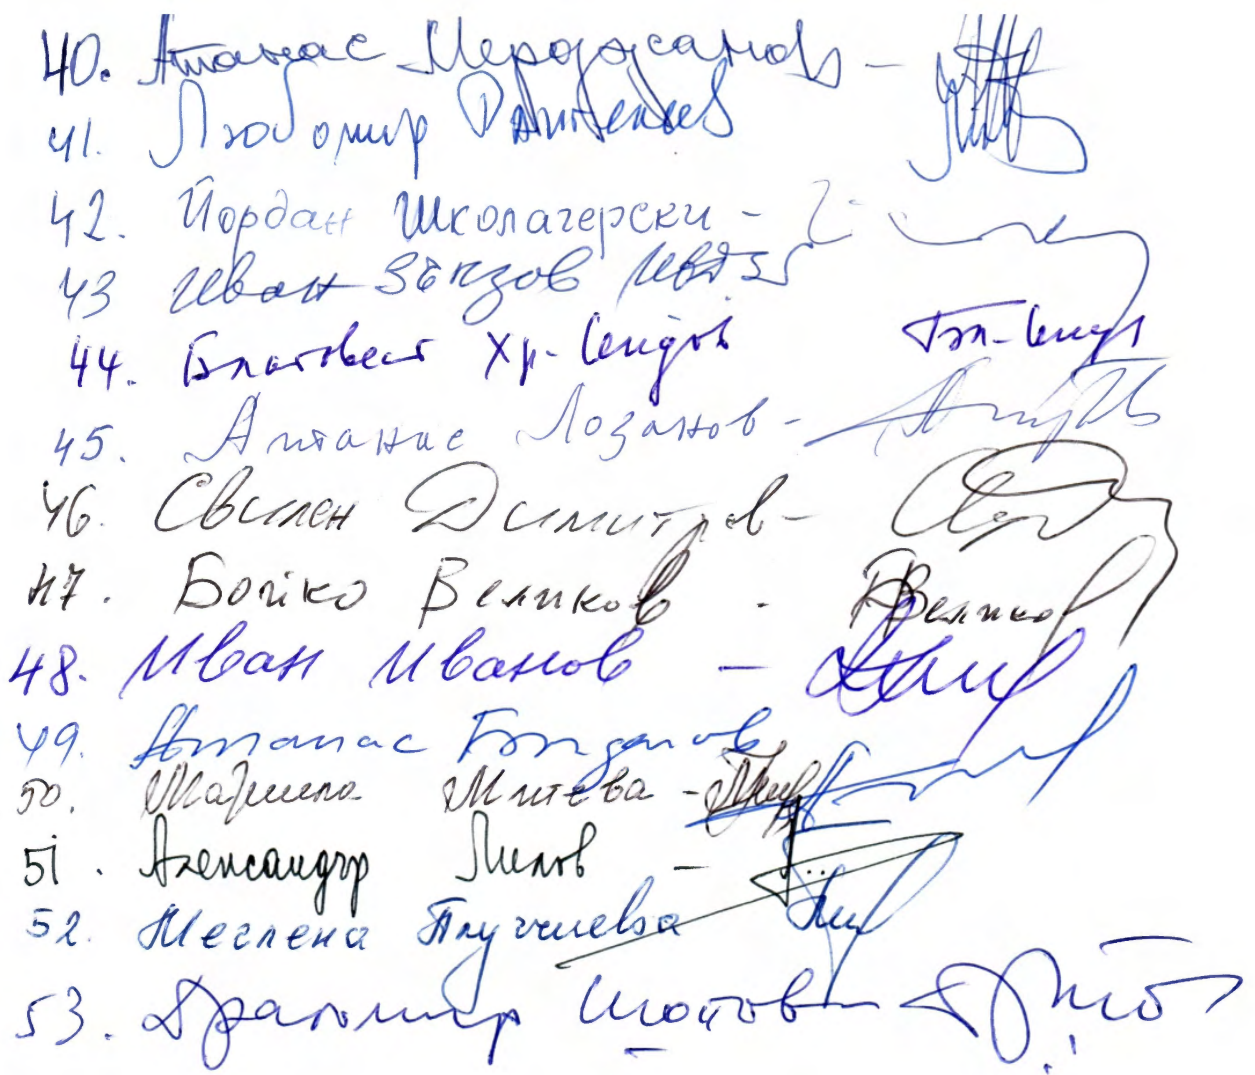 40. Атанас Мерджанов -
41. Любомир
42. Йордан Школагерски -
43 Иван Зънзов
44. Благовест Хр.
45. Атанас Лозанов -
46. Свилен Димитров -
47. Бойко Великов - БВеликов
48. Иван Иванов -
49. Атанас Богданов
50. Митева -
51. Александър Лилов -
52. Меглена Плугчиева
53. Драгомир Шопов